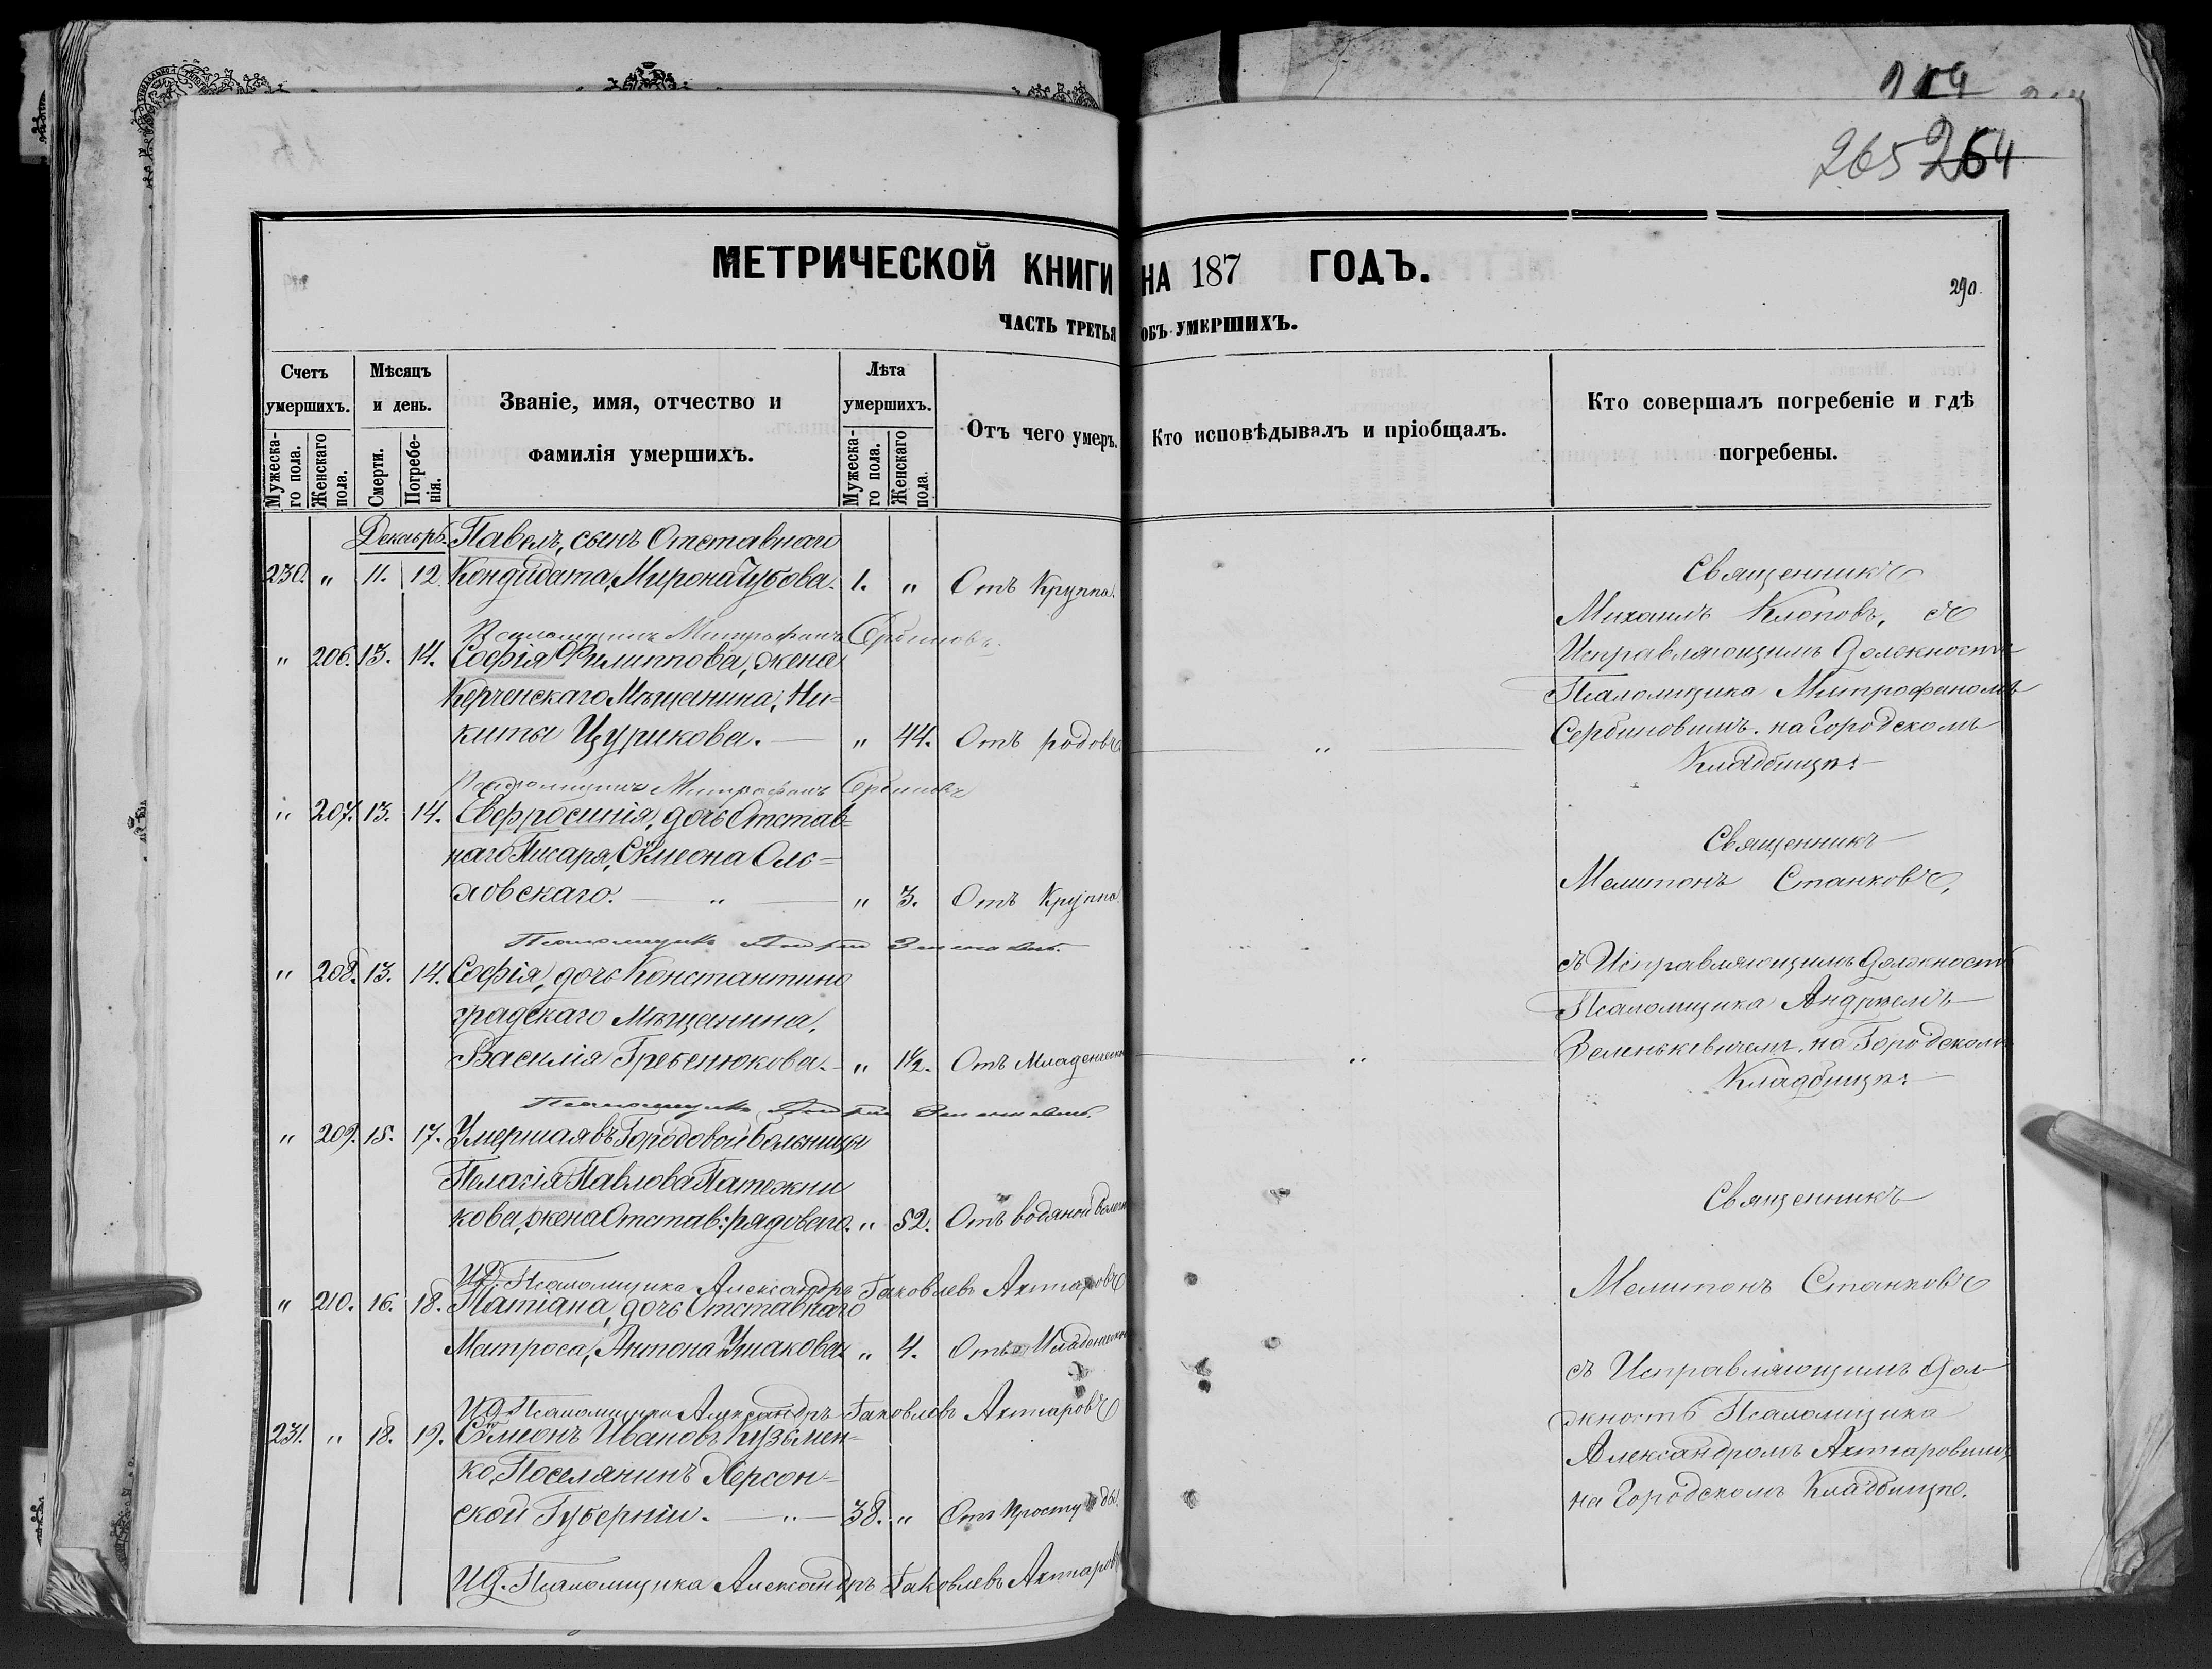 265 264
МЕТРИЧЕСКОЙ КНИГИ НА 187 ГОДЪ.
290
ЧАСТЬ ТРЕТЬЯ ОБЪ УМЕРШИХЪ.
Счетъ умершихъ.
Мужеска-го пола.
Женскаго пола.
Мѣсяцъ и день.
Смерти.
Погребе-нія.
Званіе, имя, отчество и фамилія умершихъ.
Лѣта умершихъ.
Мужеска-го пола.
Женскаго пола.
Отъ чего умеръ.
Кто исповѣдывалъ и пріобщалъ.
Кто совершалъ погребеніе и гдѣ погребены.
Декабрь. Павелъ, сынъ Отставнаго
230. " 11. 12 Кондидата, Мирона Чубова. 1. " Отъ Крупа.
Псаломщикъ Митрофанъ Сербиновъ.
" 206. 13. 14. Софія Филиппова, жена
Керченскаго Мѣщанина, Ни-
киты Цурикова. " 44. Отъ родовъ "
Псаломщикъ Митрофанъ Сербиновъ
" 207. 13. 14. Евфросинія, дочь Отстав-
наго Писаря, Сѵмеона Оль-
ховскаго. " " 3. Отъ Крупа
Псаломщикъ
" 208. 13. 14. Софія, дочь Константино
градскаго Мѣщанина,
Василія Гребенюкова. " 1½. Отъ Младенческ "
Псаломщикъ
" 209. 15. 17. Умершая въ Городовой больницѣ
Пелагія Павлова Патежни
кова, жена Отстав: рядоваго. " 52. Отъ водяной болезн
ИД. Псаломщика Александръ Яковлевъ Ахтаровъ
" 210. 16. 18. Татіана, дочь Отставнаго
Матроса, Антона Ушакова " 4. Отъ Младенческ
ИД. Псаломщика Александръ Яковлевъ Ахтаровъ
231. " 18. 19. Сѵмеонъ Ивановъ Кузьмен-
ко, Поселянинъ Херсон-
ской Губерніи. " 38. " Отъ простуды.
ИД. Псаломщика Александръ Яковлевъ Ахтаровъ
Священникъ
Михаилъ Клоповъ, съ
Исправляющимъ должность
Псаломщика Митрофаномъ
Сербиновымъ. на Городскомъ
Кладбищѣ.
Священникъ
Мелитонъ Станковъ,
съ Исправляющимъ должность
Псаломщика Андреемъ
Зеленькевичемъ. на Городскомъ
Кладбищѣ.
Священникъ
Мелитонъ Станковъ
съ Исправляющимъ дол-
жность Псаломщика
Александромъ Ахтаровымъ,
на Городскомъ Кладбищѣ.